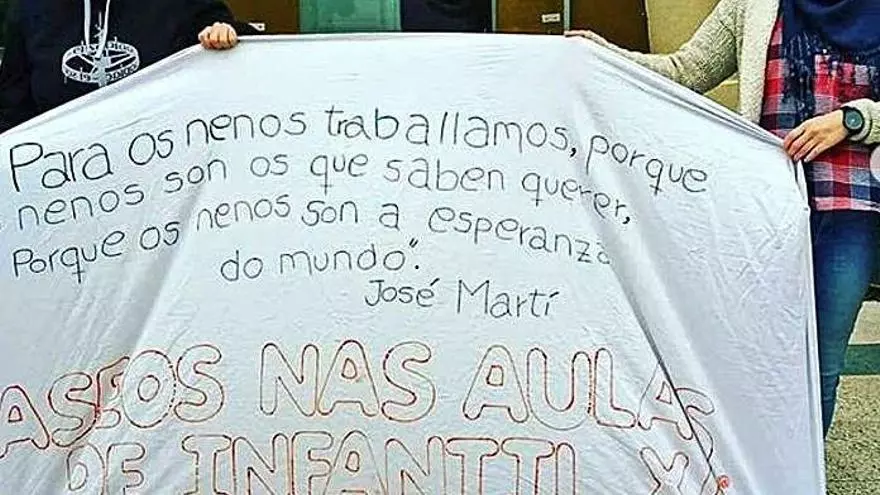 Para os nenos traballamos, porque
nenos son os que saben querer,
Porque os nenos son a esperanza
do mundo".
José Martí
ASEOS NAS AULAS
DE INFANTIL XA